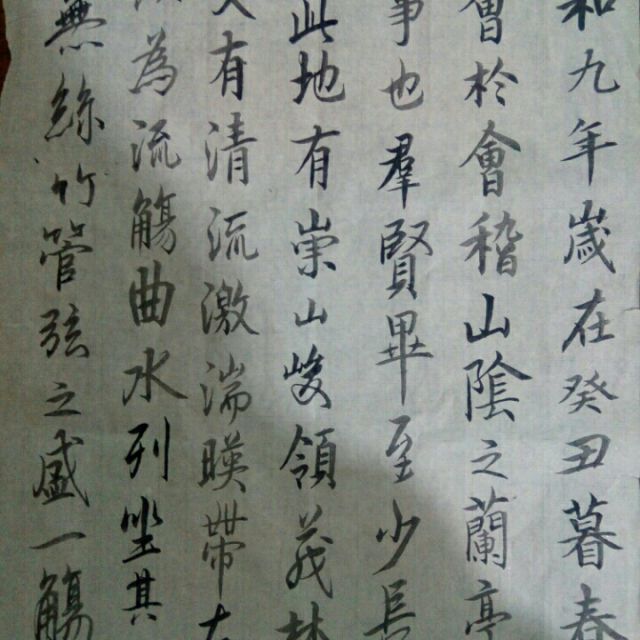 和九年歲在癸丑暮春
會於會稽山陰之蘭亭
事也羣賢畢至少長
此地有崇山峻領茂林
又有清流激湍暎帶左
為流觴曲水列坐其
無絲竹管弦之盛一觴